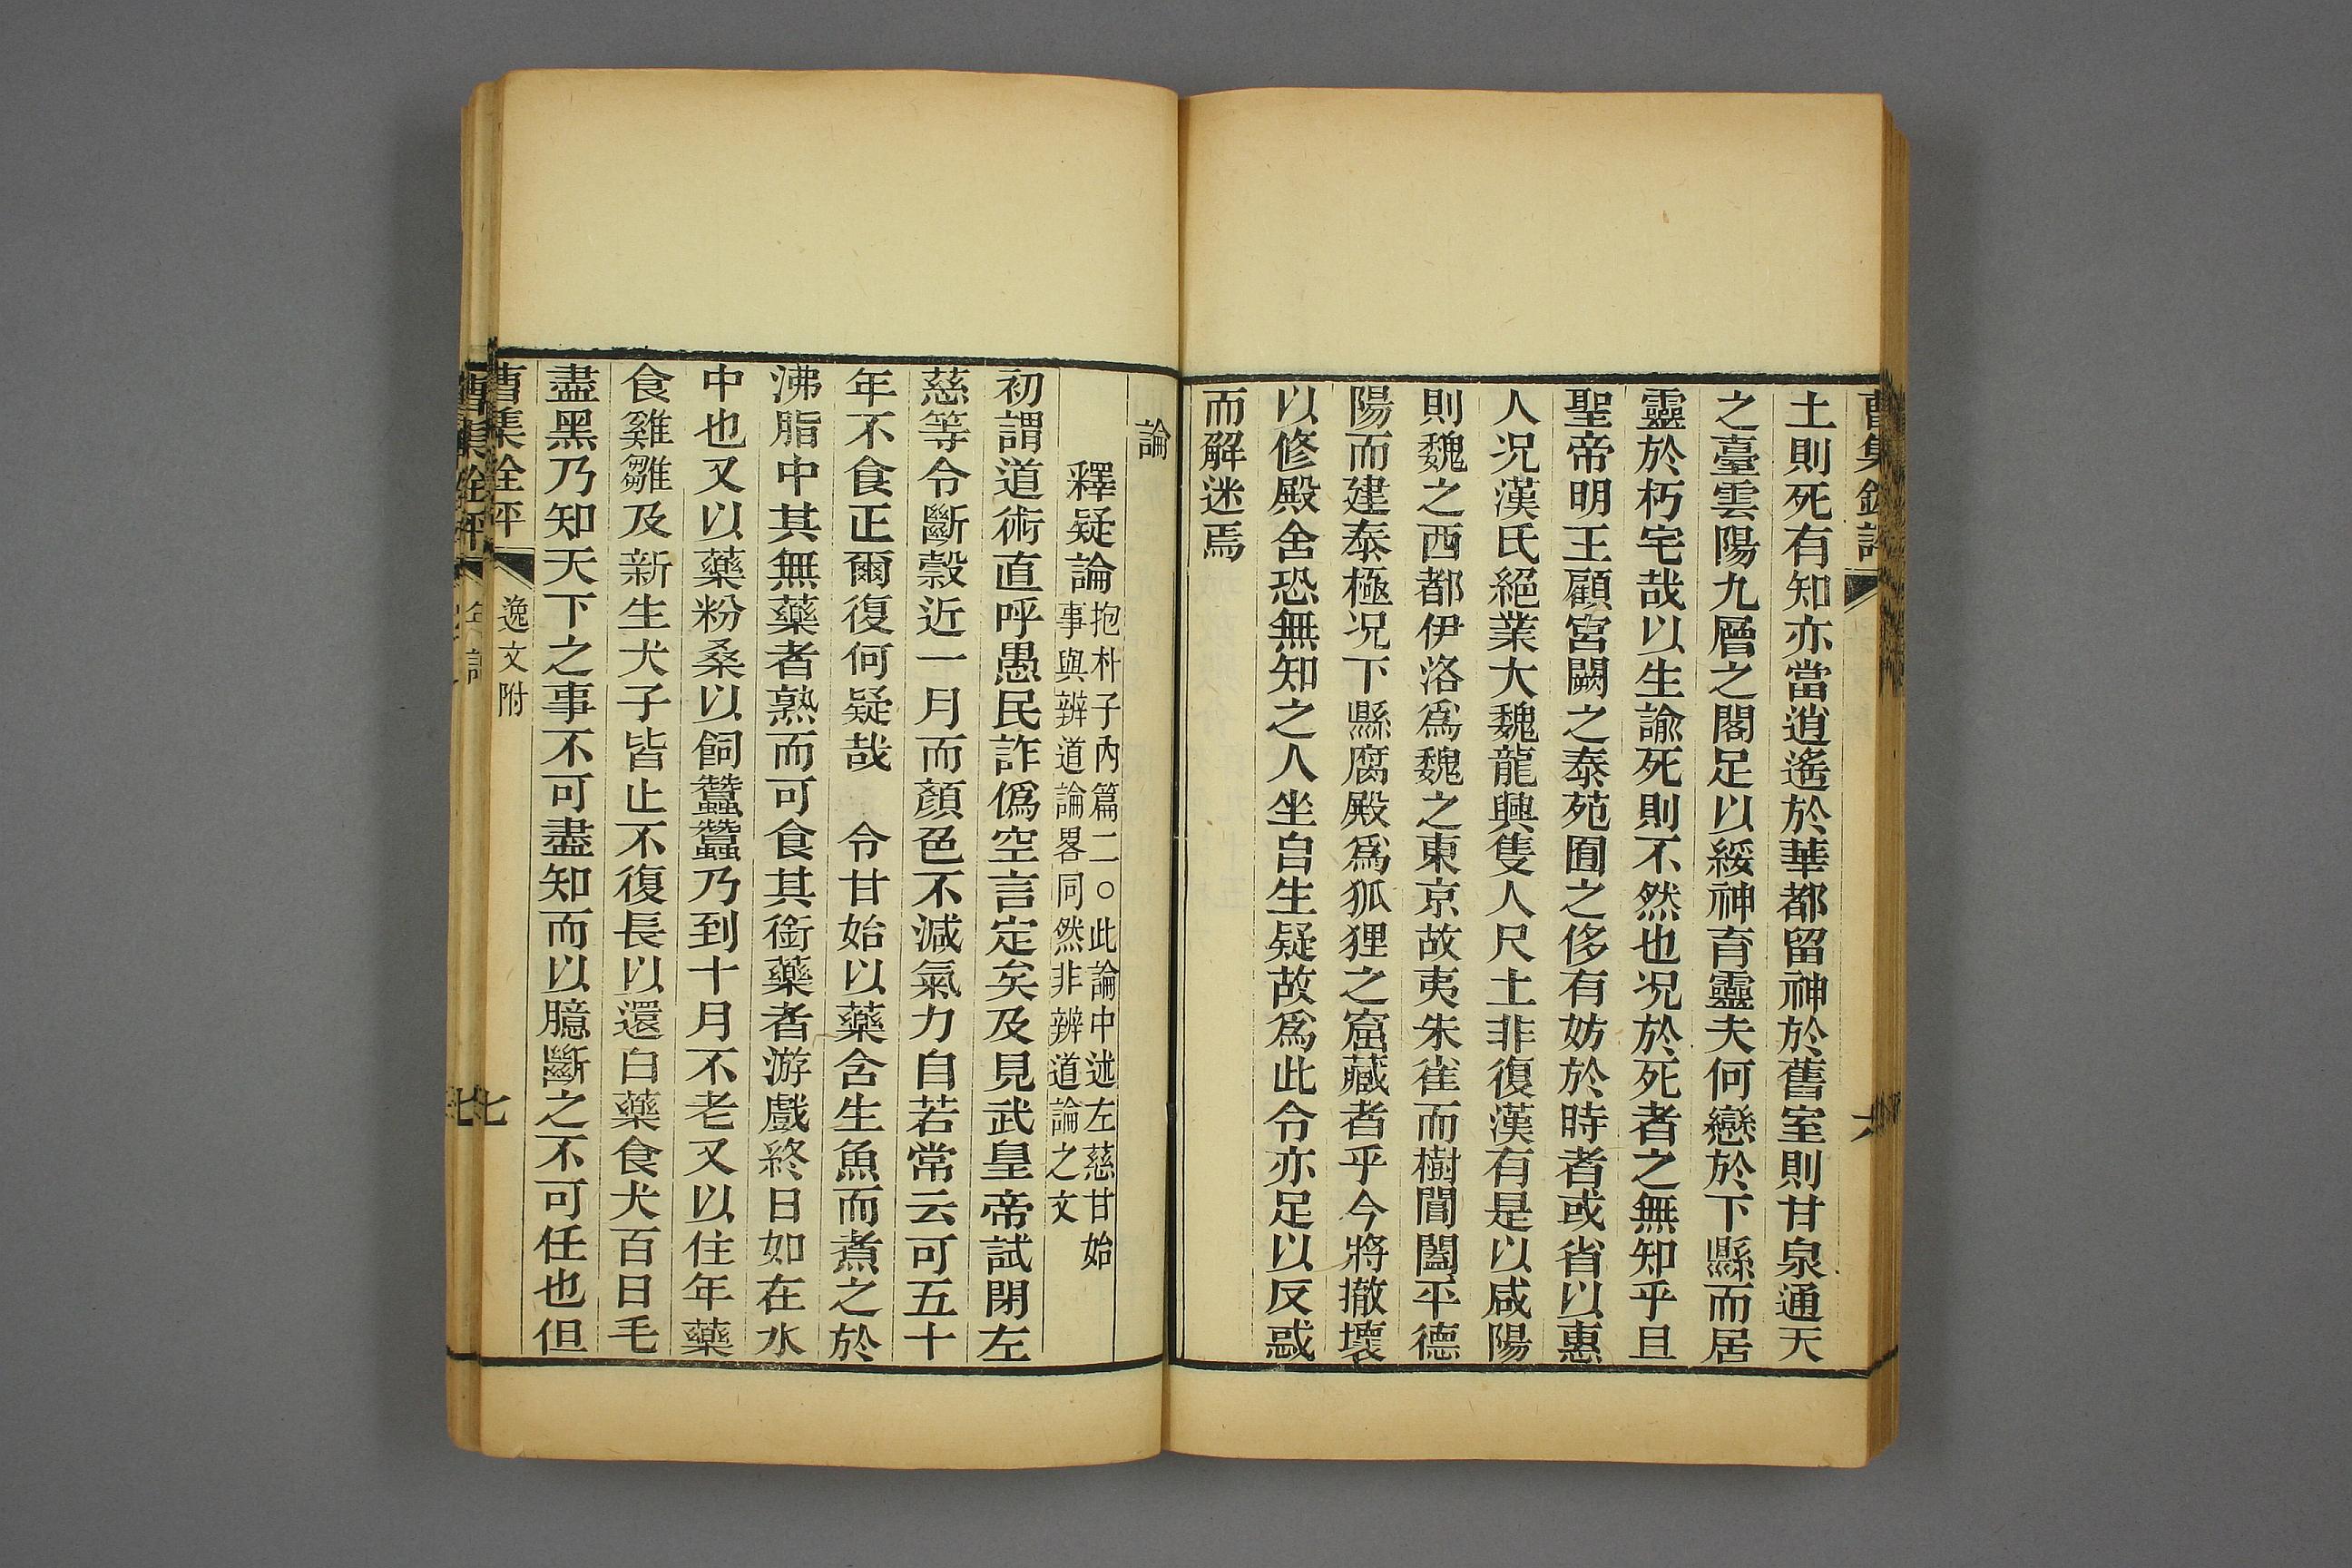 土則死有知亦當逍遙於華都留神於舊室則甘泉通天
之臺雲陽九層之閣足以綏神育靈夫何戀於下縣而居
靈於朽宅哉以生諭死則不然也况於死者之無知乎且
聖帝明王顧宮闕之泰苑囿之侈有妨於時者或省以惠
人况漢氏絕業大魏龍興隻人尺土非復漢有是以咸陽
則魏之西都伊洛爲魏之東京故夷朱雀而樹閶闔平德
陽而建泰極况下縣腐殿爲狐狸之窟藏者乎今將撤壞
以修殿舍恐無知之人坐自生疑故爲此令亦足以反惑
而解迷焉
論
釋疑論
抱朴子內篇二○此論中述左慈甘始
事與辨道論畧同然非辨道論之文
初謂道術直呼愚民詐僞空言定矣及見武皇帝試閉左
慈等令斷穀近一月而顏色不減氣力自若常云可五十
年不食正爾復何疑哉 令甘始以藥含生魚而煮之於
沸脂中其無藥者熟而可食其銜藥者游戲終日如在水
中也又以藥粉桑以飼蠶蠶乃到十月不老又以住年藥
食雞雛及新生犬子皆止不復長以還白藥食犬百日毛
盡黑乃知天下之事不可盡知而以臆斷之不可任也但
曹集銓評
逸文附
七